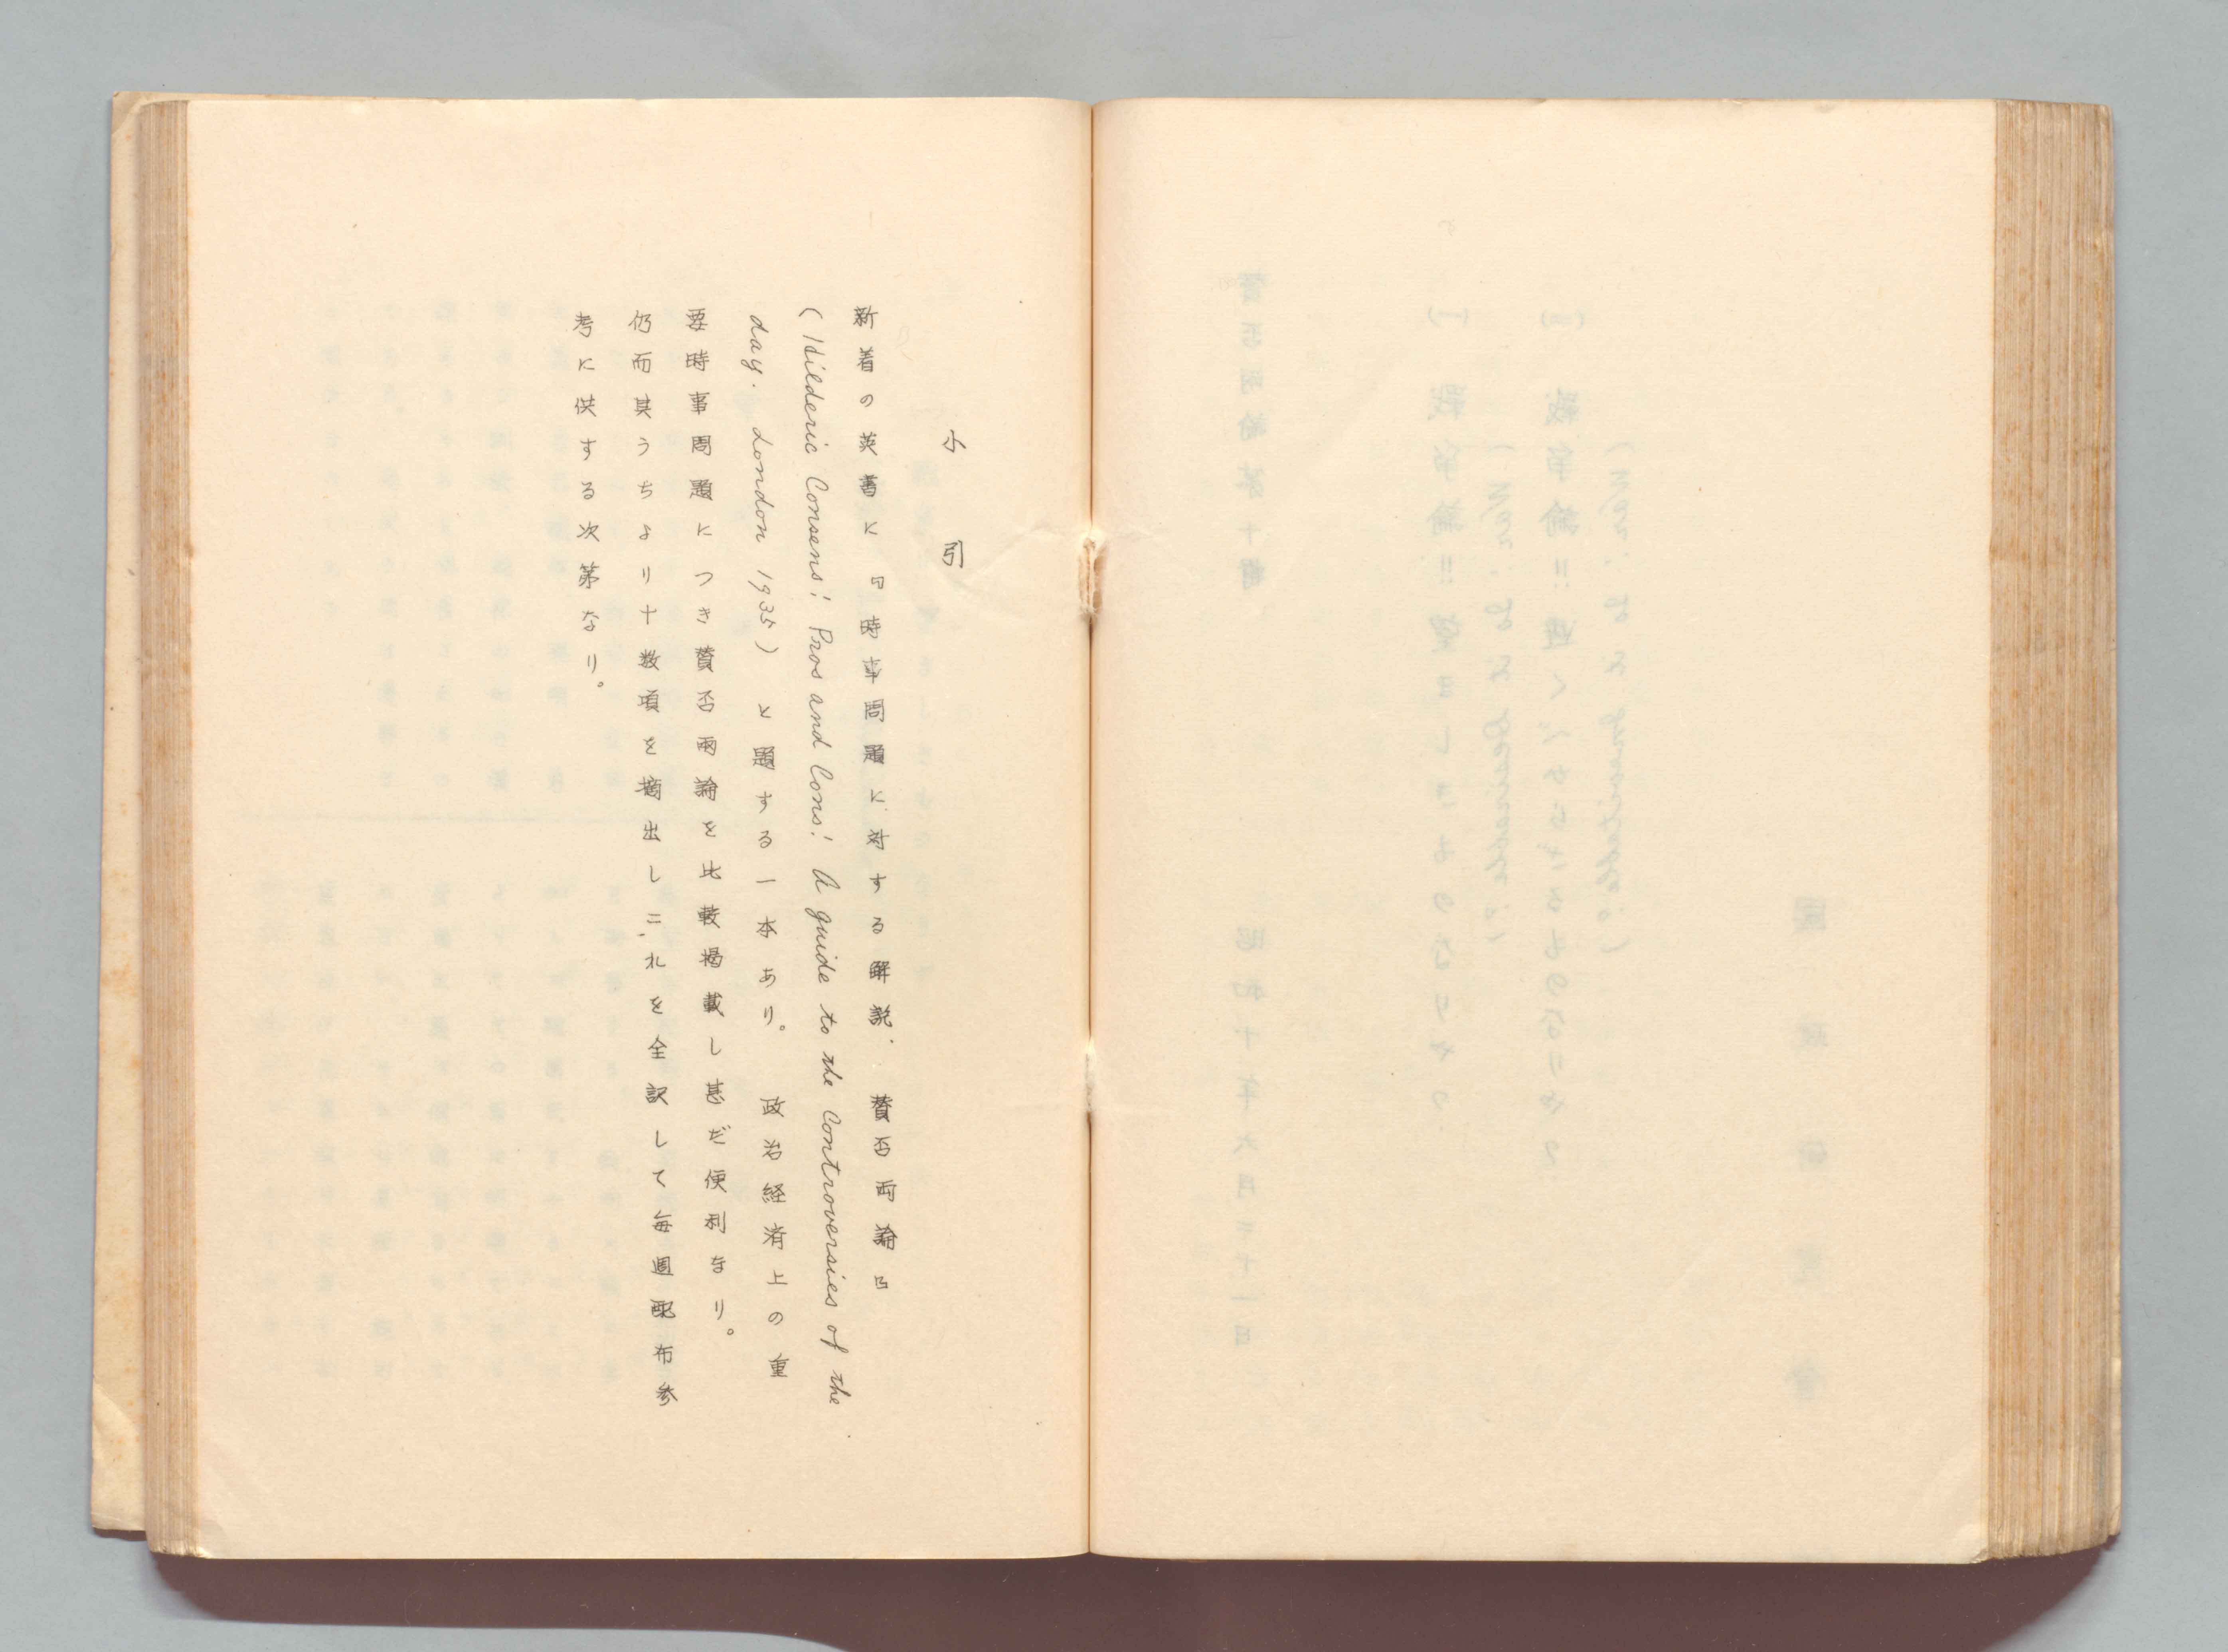 小引
新着の英書に『時事問題に対する解説.賛否両論』
(Hilderic Consens! Pros and Cons! A guide to the Controversies of the
day. London 1935)と題する一本あり。政治経済上の重
要時事問題につき賛否両論を比較掲載し甚だ便利なり。
仍而其うちより十数項を摘出しこれを全訳して毎週配布参
考に供する次第なり。